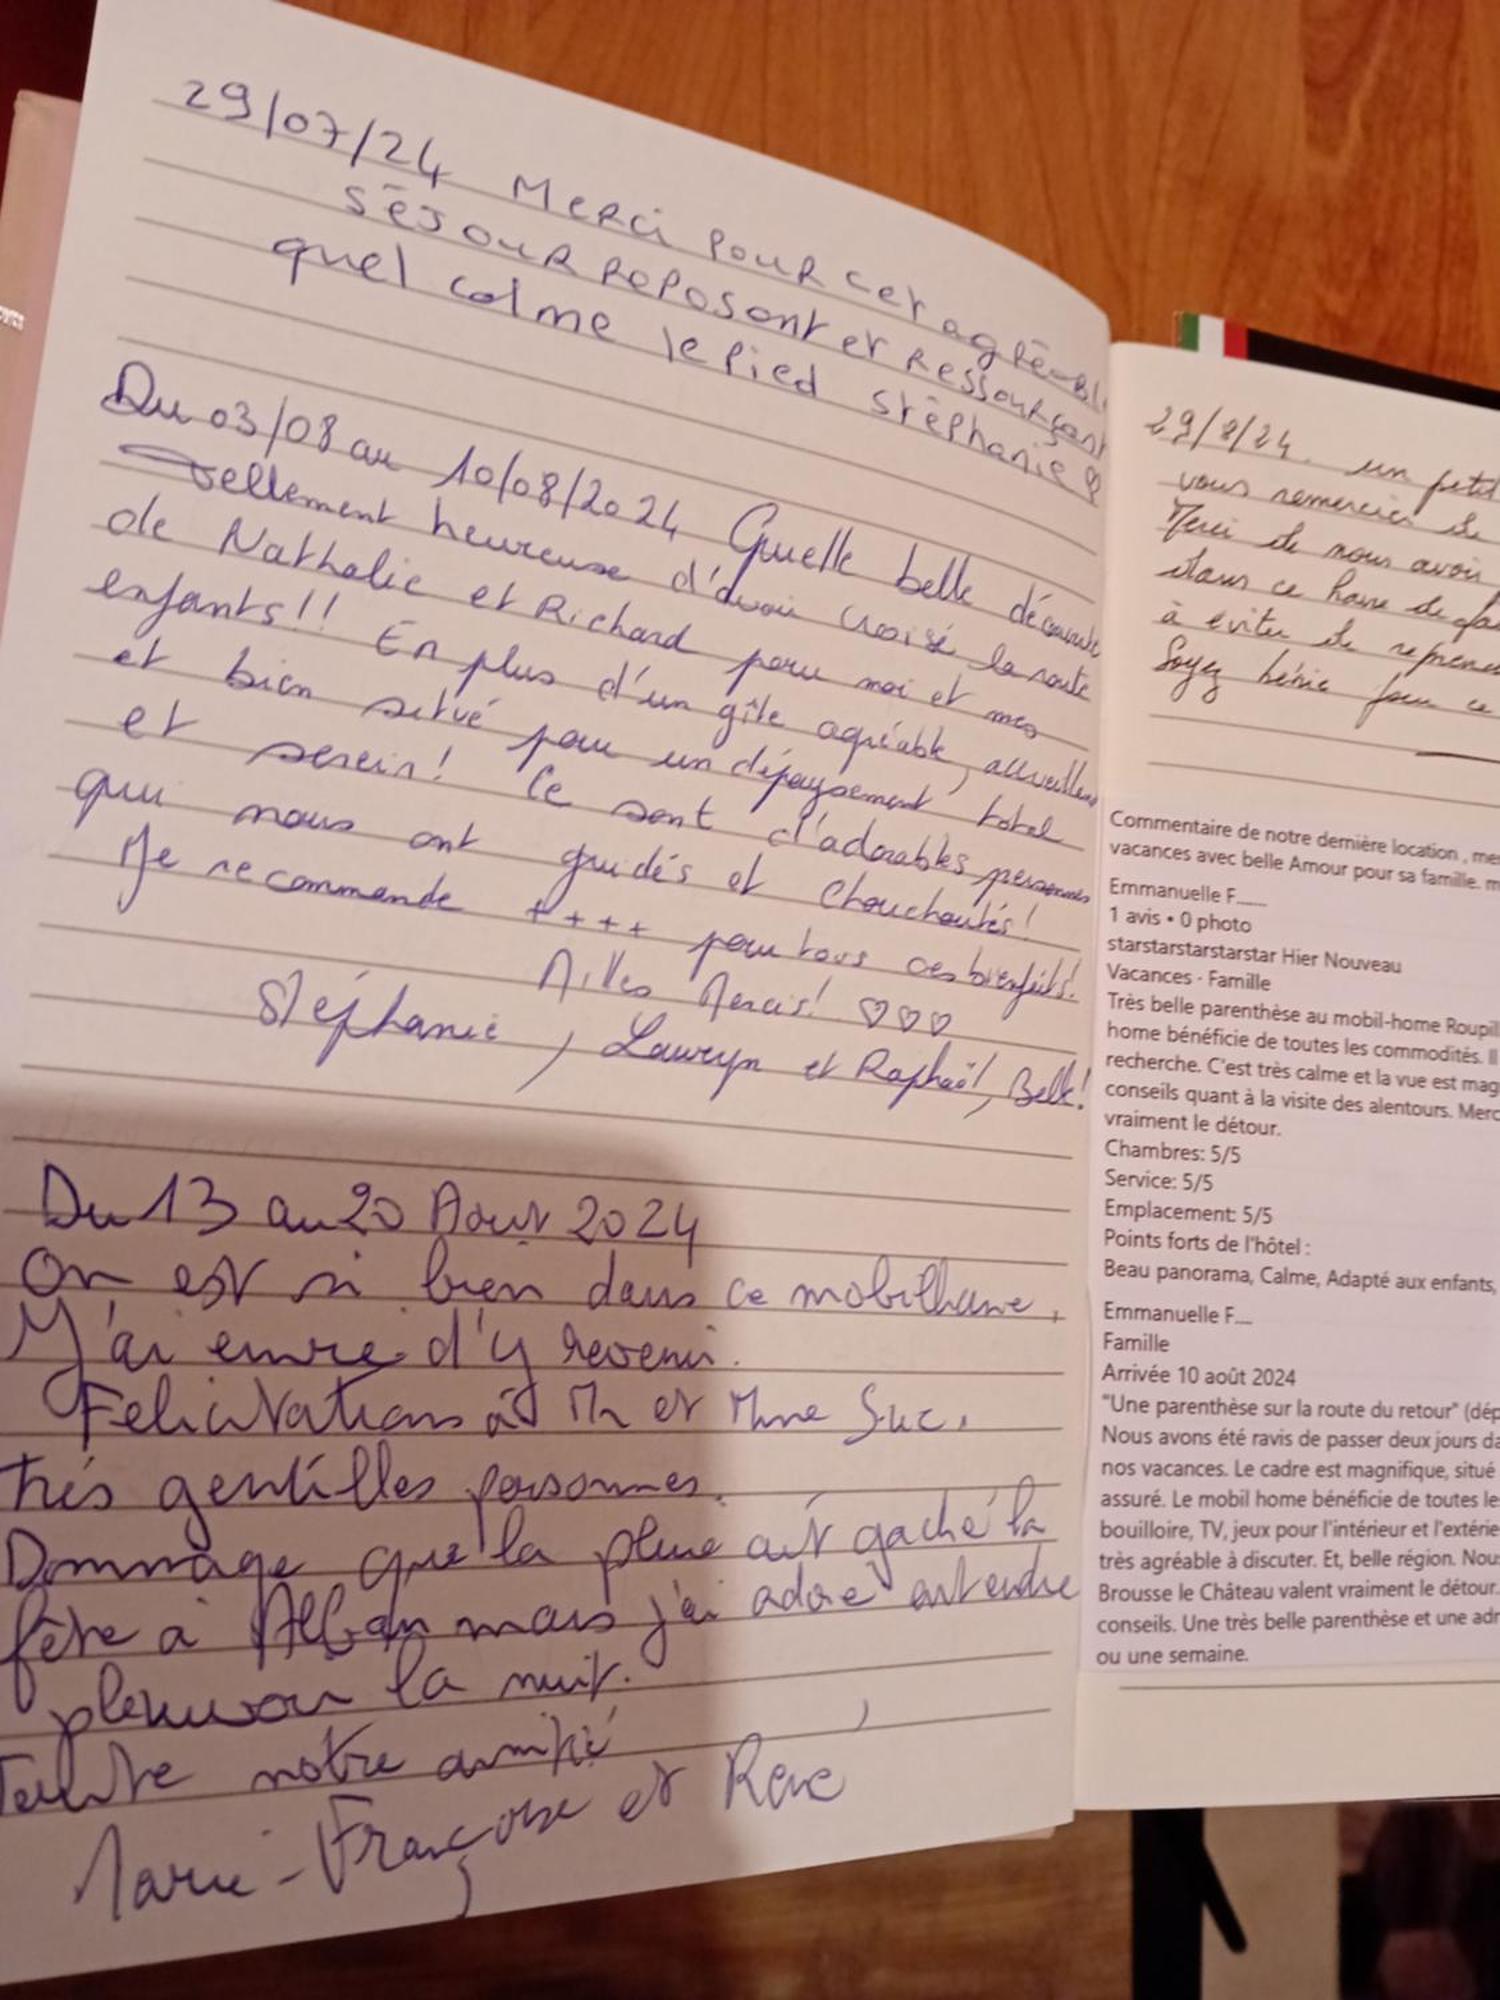 29/07/24 Merci pour cet agréabl
séjour reposant et ressourçant
quel calme le pied Stéphanie
Du 03/08 au 10/08/2024 Quelle belle découverte
tellement heureuse d'avoir croisé la route
de Nathalie et Richard pour moi et mes
enfants!! En plus d'un gîte agréable, accueillant
et bien situé pour un dépaysement total
et serein! Ce sont d'adorables personnes
qui nous ont guidés et chouchoutés!
Je recommande ++++ pour tous ces bienfaits!
Milles Mercis! ♡♡♡
Stéphanie, Lauryn et Raphaël, Belle!
Du 13 au 20 Aout 2024
On est si bien dans ce mobilhome,
J'ai envie d'y revenir.
Felicitations à Mr et Mme Suc,
très gentilles personnes.
Dommage que la pluie ait gaché la
fête à Alban mais j'ai adoré entendre
pleuvoir la nuit.
Toute notre amitié
Marie-Françoise et René
29/8/24. un petit
vous remercier de
Merci de nous avoir
dans ce havre de
à éviter de
Soyez bénie pour ce
Commentaire de notre dernière location , mes
vacances avec belle Amour pour sa famille. m
Emmanuelle F......
1 avis • 0 photo
starstarstarstarstar Hier Nouveau
Vacances - Famille
Très belle parenthèse au mobil-home Roupil
home bénéficie de toutes les commodités. Il
recherche. C'est très calme et la vue est mag
conseils quant à la visite des alentours. Merc
vraiment le détour.
Chambres: 5/5
Service: 5/5
Emplacement: 5/5
Points forts de l'hôtel :
Beau panorama, Calme, Adapté aux enfants,
Emmanuelle F....
Famille
Arrivée 10 août 2024
"Une parenthèse sur la route du retour" (dép
Nous avons été ravis de passer deux jours da
nos vacances. Le cadre est magnifique, situé
assuré. Le mobil home bénéficie de toutes les
bouilloire, TV, jeux pour l'intérieur et l'extérie
très agréable à discuter. Et, belle région. Nous
Brousse le Château valent vraiment le détour.
conseils. Une très belle parenthèse et une adr
ou une semaine.